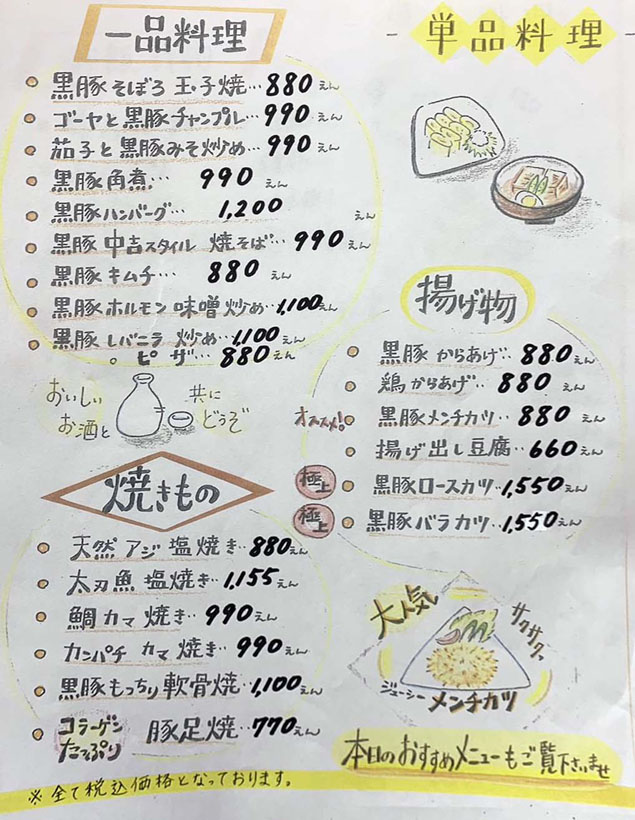 一品料理
黒豚そぼろ玉子焼‥880えん
ゴーヤと黒豚チャンプル‥990えん
茄子と黒豚みそ炒め‥990えん
黒豚角煮… 990えん
黒豚ハンバーグ… 1,200えん
黒豚 中吉スタイル 焼そば… 990えん
黒豚キムチ… 880えん
黒豚ホルモン 味噌炒め‥1,100えん
黒豚レバニラ 炒め‥1,100えん
ピザ‥880えん
おいしい
お酒と
共に
どうぞ
焼きもの
天然アジ 塩焼き‥880えん
太刃魚 塩焼き‥1,155えん
鯛カマ 焼き‥990えん
カンパチ カマ 焼き‥990えん
黒豚もっちり軟骨焼‥1,100えん
コラーゲン
たっぷり
豚足焼‥770えん
※全て税込価格となっております。
- 単品料理 -
揚げ物
黒豚 からあげ‥880えん
鶏からあげ‥880えん
オススメ! 黒豚メンチカツ‥880えん
揚げ出し豆腐‥660えん
極上 黒豚ロースカツ‥1,550えん
極上 黒豚バラカツ‥1,550えん
大人気
サクサク、
ジューシー メンチカツ
本日のおすすめメニューもご覧下さいませ